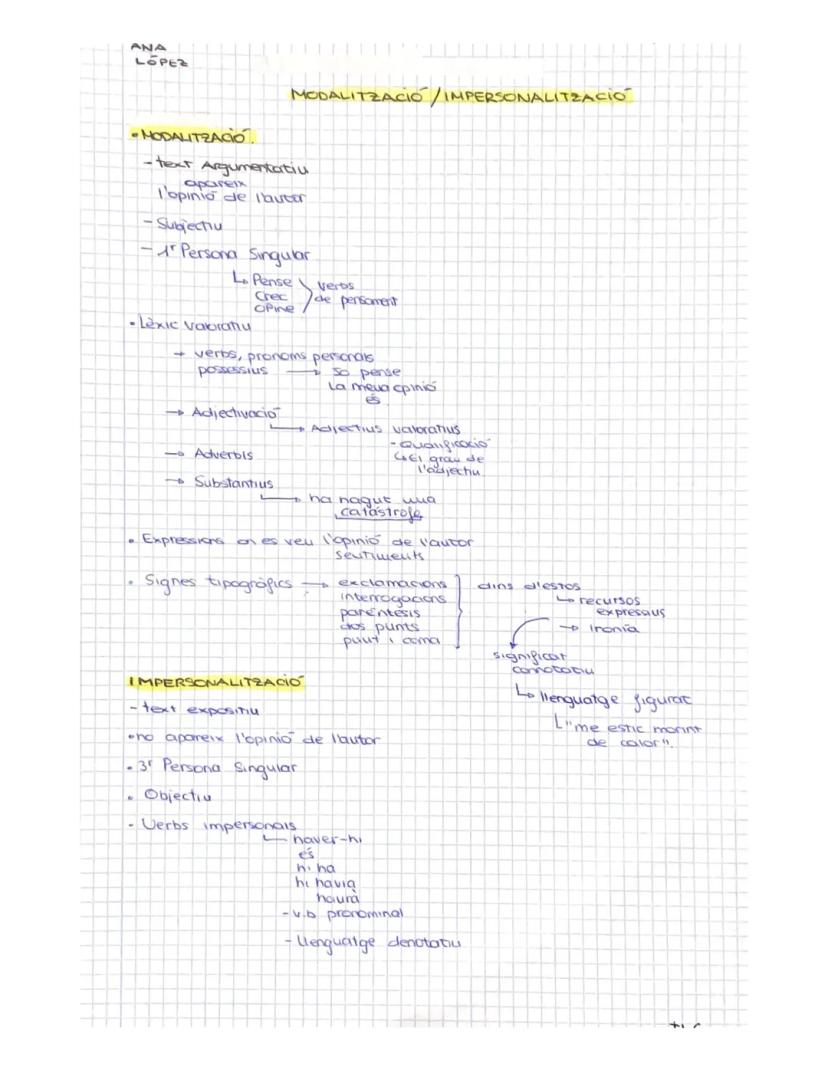 ANA
LÓPEZ
MODALITZACIÓ / IMPERSONALITZACIÓ
• MODALITZACIÓ.
- text Argumentatiu
apareix
l'opinió de l'autor
- Subjectiu
- 1ª Persona Singular
↳ Pense
Crec
Opine
verbs
de pensament
• Lèxic valoratiu
→ verbs, pronoms personals
possessius → Jo pense
La meua opinió
és
→ Adjectivació
↳ Adjectius valoratius
- Qualificació
↳ El grau de
l'adjectiu
→ Adverbis
→ Substantius
↳ ha nagut una
catástrofe
• Expressions on es veu l'opinió de l'autor
sentiments
• Signes tipogràfics → exclamacions
interrogacions
paréntesis
dos punts
punt i coma
dins d'estos
↳ recursos
expressius
→ Ironía
significat
connotatiu
↳ llenguatge figurat
↳ "me estic morint
de calor".
IMPERSONALITZACIÓ
- text expositiu
• no apareix l'opinió de l'autor
• 3ª Persona Singular
• Objectiu
- Verbs impersonals
↳ haver-hi
és
hi ha
hi havia
haurà
- v.b pronominal
- Llenguatge denotatiu